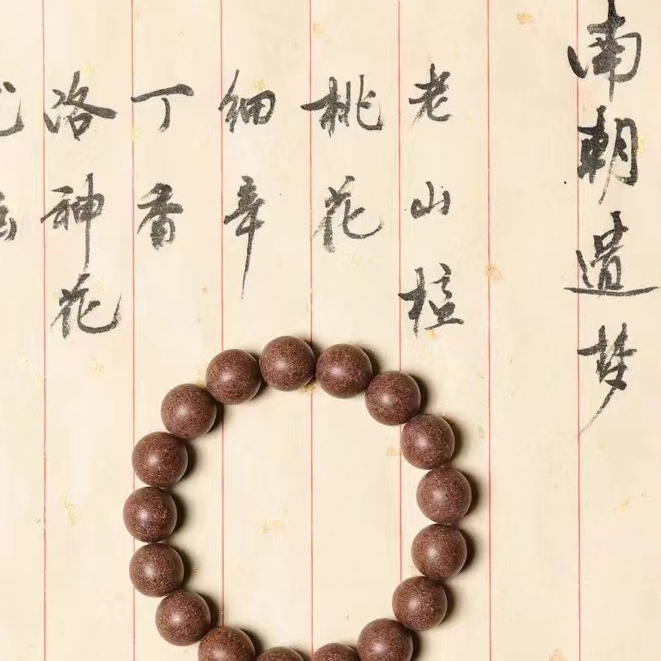 南朝遗梦
老山檀
桃花
细辛
丁香
洛神花